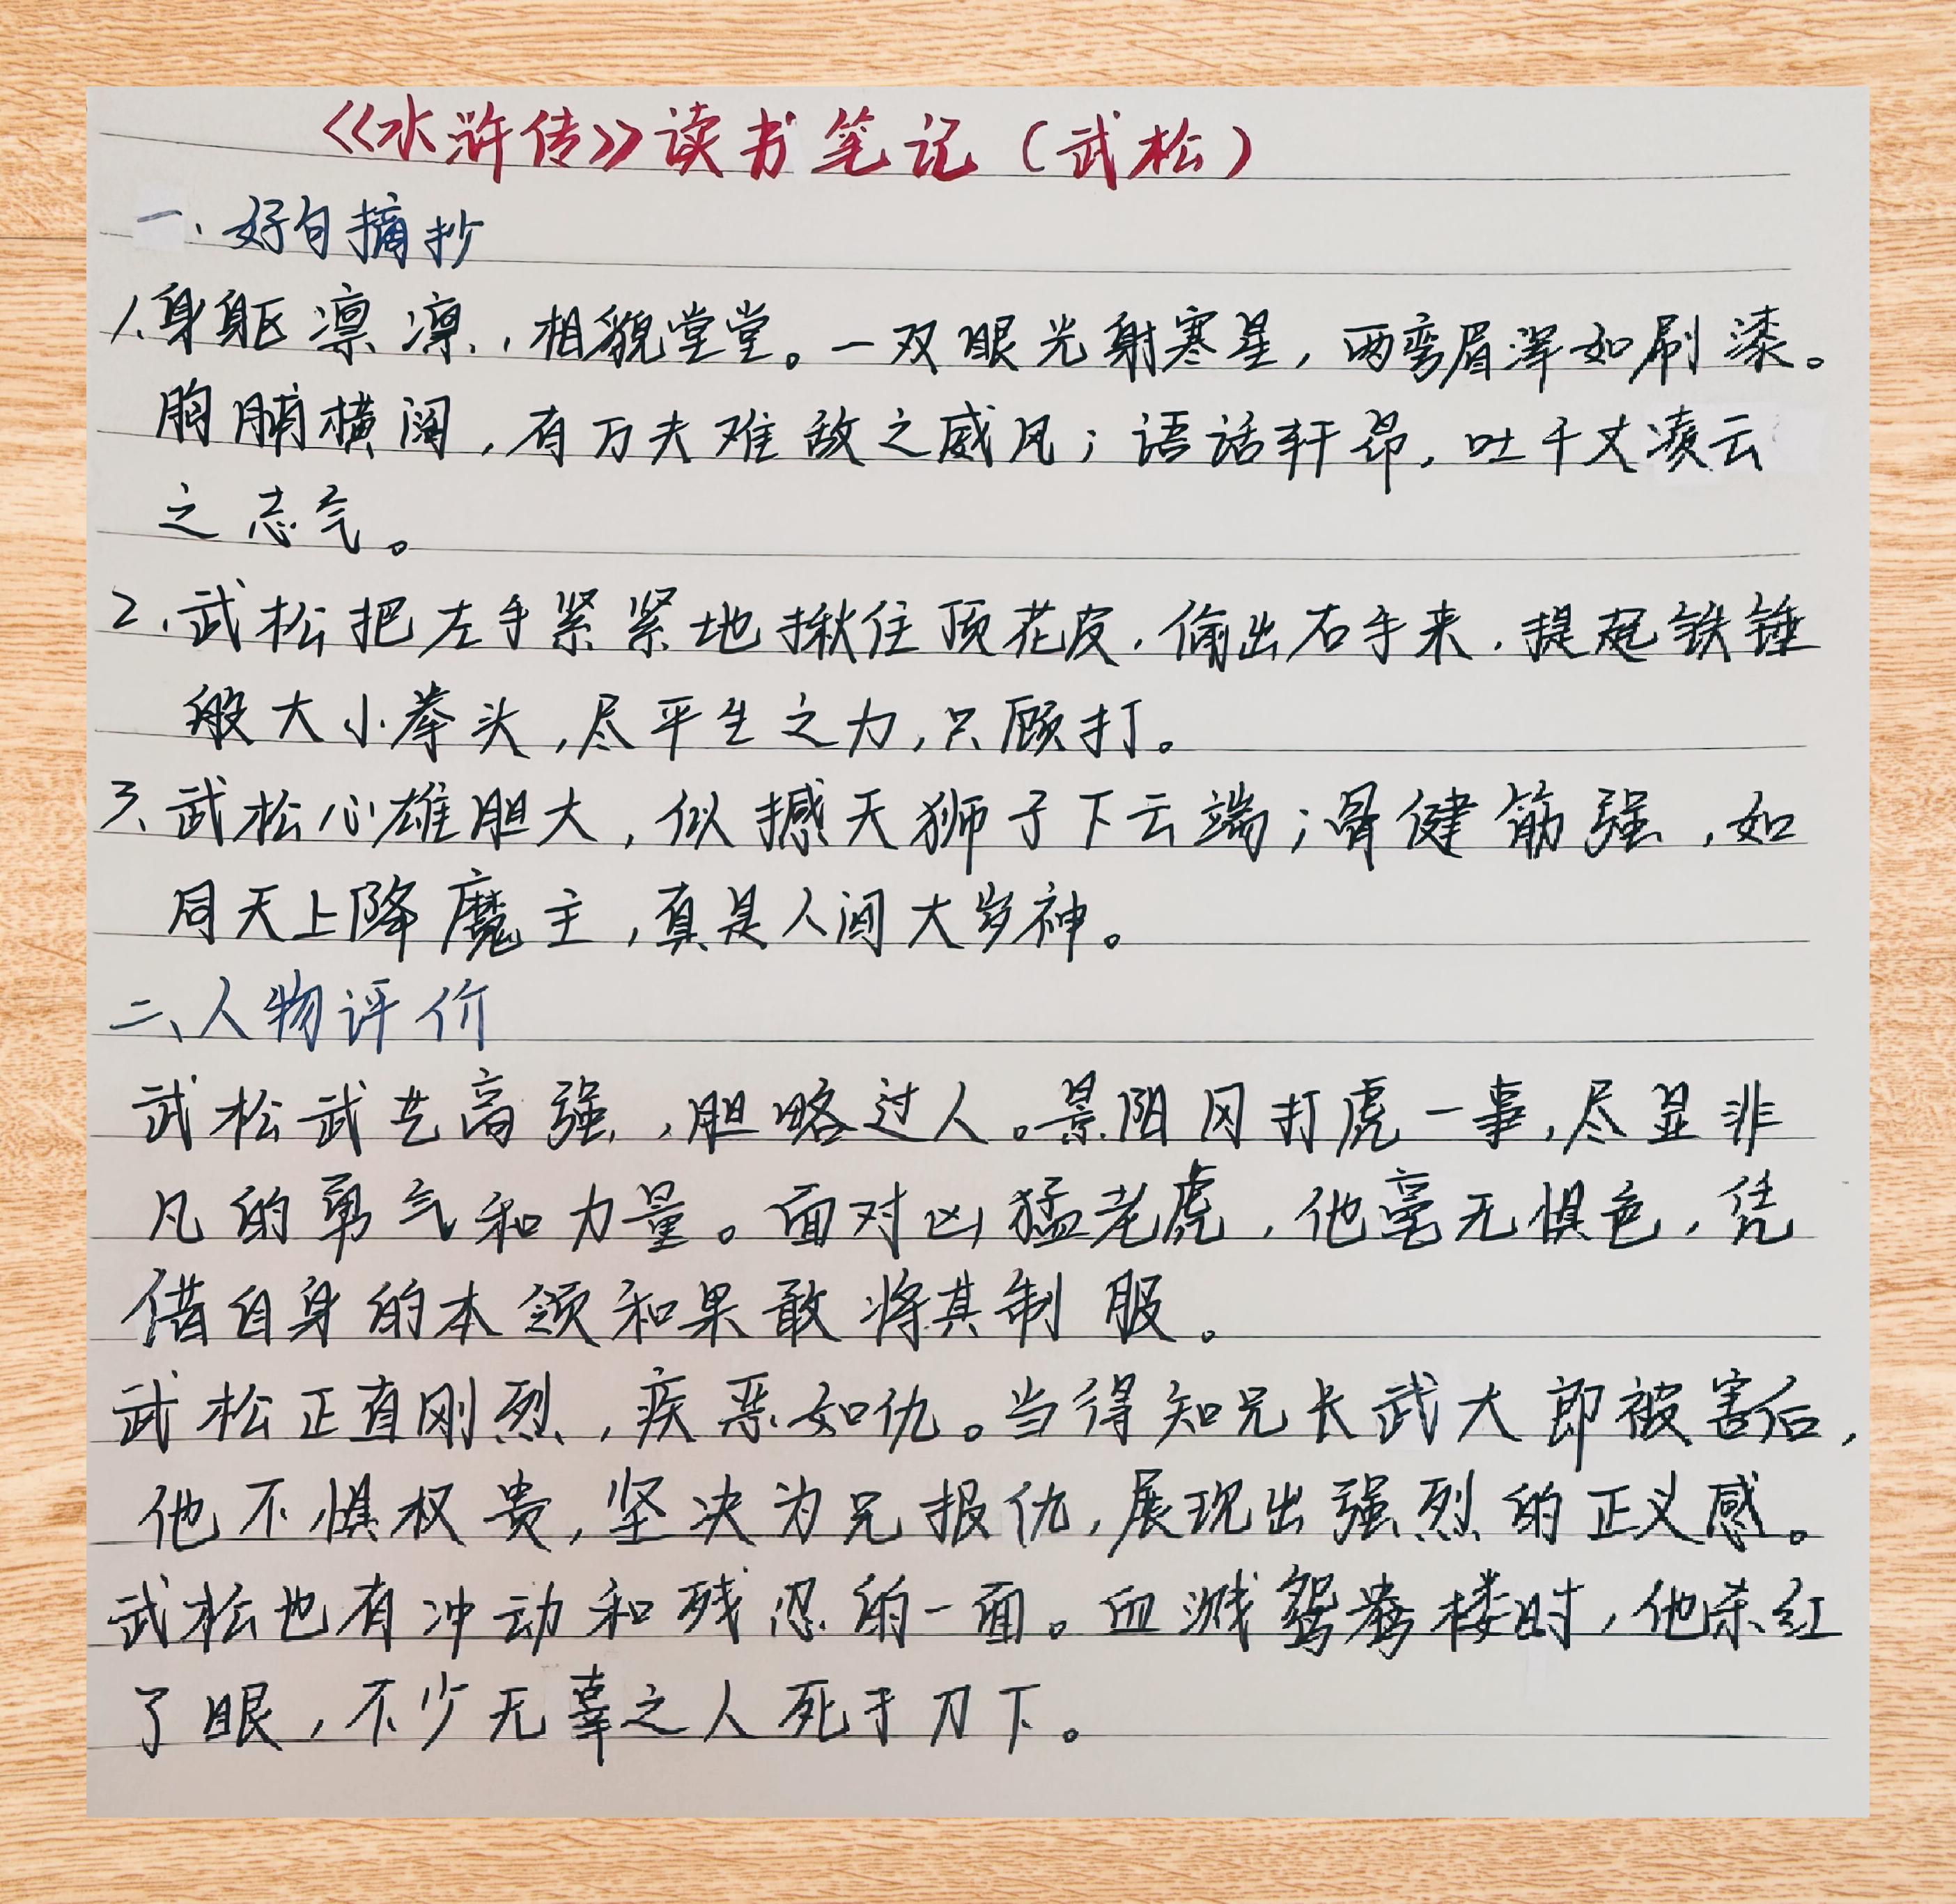 《水浒传》读书笔记（武松）
一、好句摘抄
1.身躯凛凛，相貌堂堂。一双眼光射寒星，两弯眉浑如刷漆。
胸脯横阔，有万夫难敌之威风；语话轩昂，吐千丈凌云
之志气。
2.武松把左手紧紧地揪住顶花皮，偷出右手来，提起铁锤
般大小拳头，尽平生之力，只顾打。
3、武松心雄胆大，似撼天狮子下云端；骨健筋强，如
同天上降魔主，真是人间大岁神。
二、人物评价
武松武艺高强，胆略过人。景阳冈打虎一事，尽显非
凡的勇气和力量。面对凶猛老虎，他毫无惧色，凭
借自身的本领和果敢将其制服。
武松正直刚烈，疾恶如仇。当得知兄长武大郎被害后，
他不惧权贵，坚决为兄报仇，展现出强烈的正义感。
武松也有冲动和残忍的一面。血溅鸳鸯楼时，他杀红
了眼，不少无辜之人死于刀下。